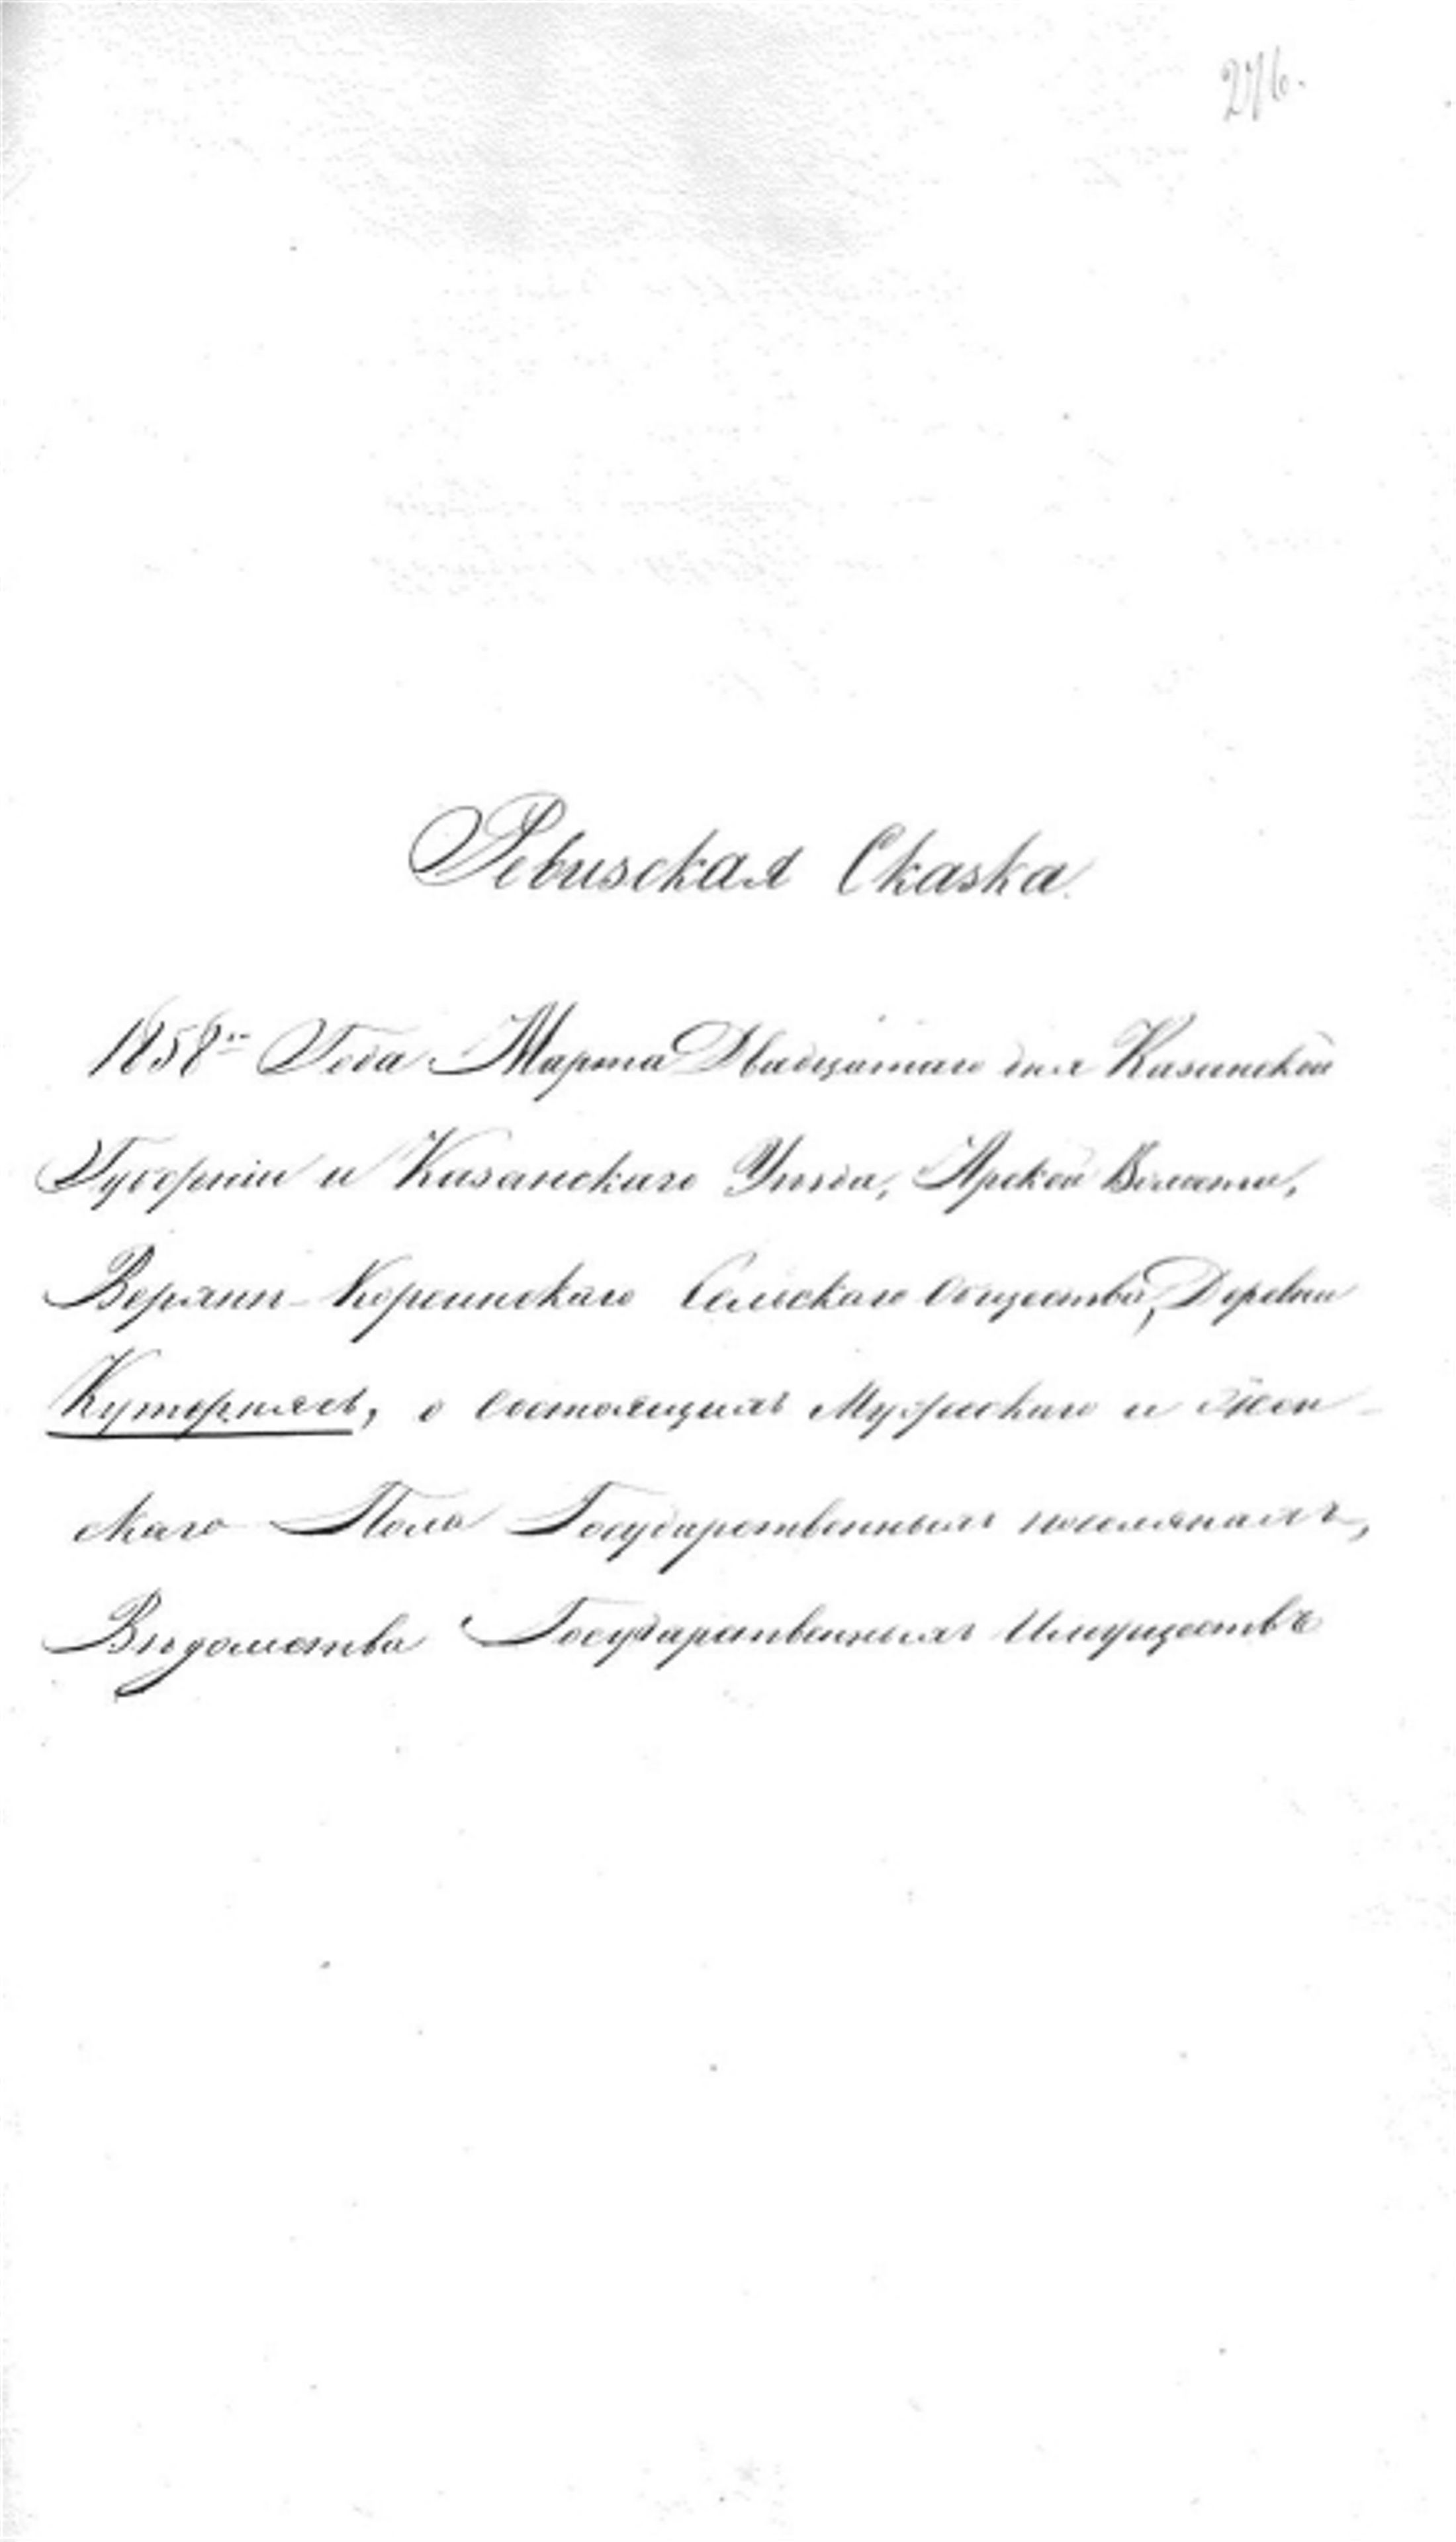 276.
Ревизская Сказка.
1858го Года Марта Двадцатаго дня Казанской
Губерніи и Казанскаго Уѣзда, Арской Волости,
Верхни-Корсинскаго Сельскаго Общества, Деревни
Кутернясь, о Состоящихъ Мужескаго и Жен-
скаго Пола Государственныхъ поселянахъ,
Вѣдомства Государственныхъ Имуществъ